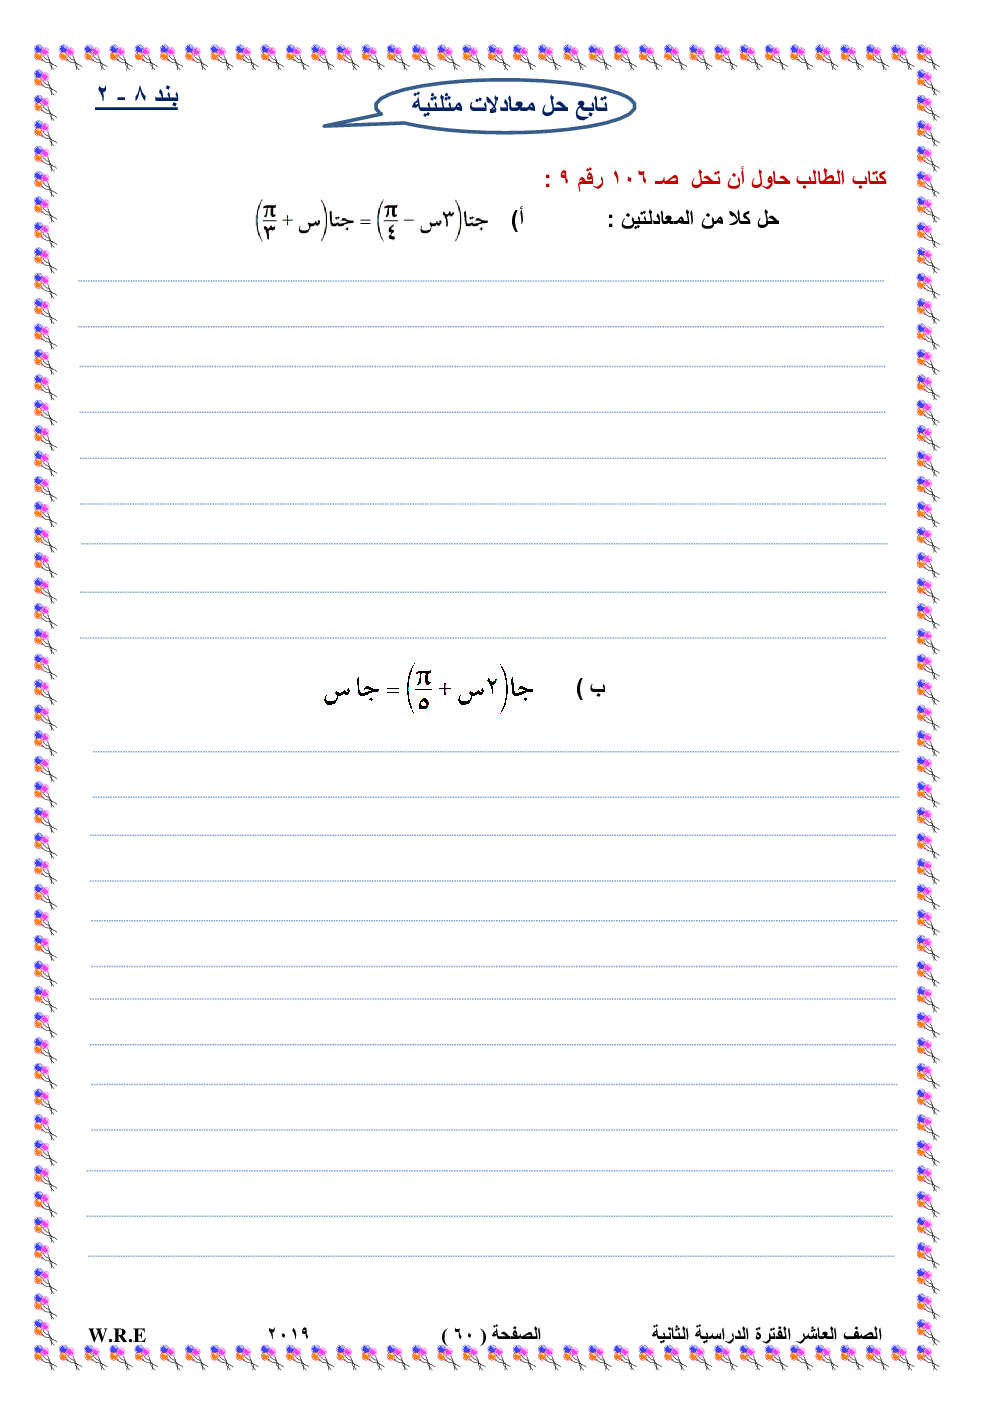 بند ٨ - ٢
تابع حل معادلات مثلثية
كتاب الطالب حاول أن تحل صـ ١٠٦ رقم ٩ :
حل كلا من المعادلتين : أ) جتا(٣س − π/٤) = جتا(س + π/٣)
ب ) جا(٢س + π/٥) = جا س
الصف العاشر الفترة الدراسية الثانية الصفحة ( ٦٠ ) ٢٠١٩ W.R.E